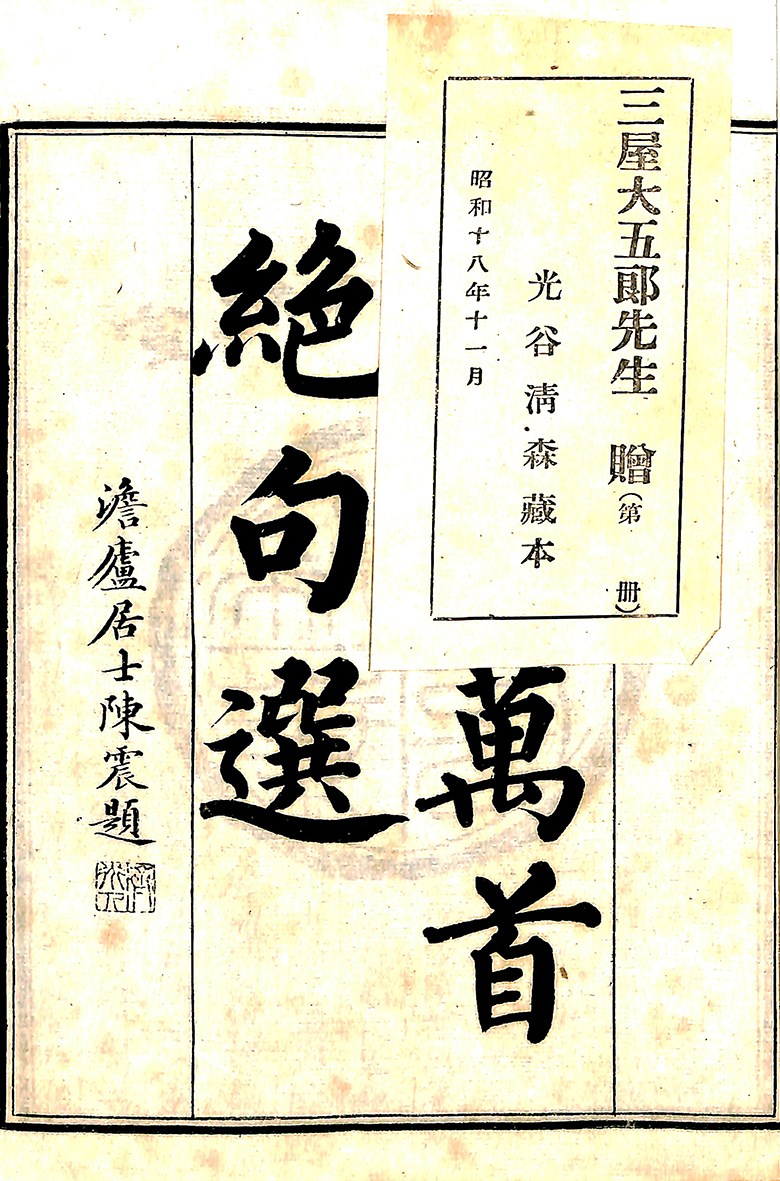 三屋大五郎先生 贈(第 册)
光谷清森藏本
昭和十八年十一月
萬首
絶句選
澹廬居士陳震題